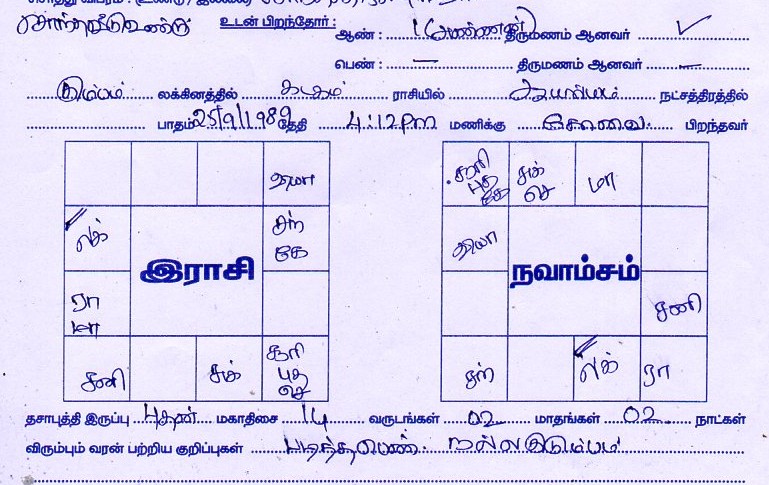 சொந்தவீடு உண்டு உடன் பிறந்தோர் : ஆண் : 1 (அண்ணன்) திருமணம் ஆனவர் ✓
பெண் : — திருமணம் ஆனவர் —
கும்பம் லக்கினத்தில் கடகம் ராசியில் ஆயில்யம் நட்சத்திரத்தில்
பாதம் 25/9/1989 தேதி 4:12 Pm மணிக்கு கோவை பிறந்தவர்
குயா
லக்
சந் கே
இராசி
ரா மா
சனி
சுக்
சூரி புத செ
சூரி புத கே
சுக் செ
மா
குயா
நவாம்சம்
சனி
சந்
லக்
ரா
தசாபுத்தி இருப்பு புதன் மகாதிசை 14 வருடங்கள் 02 மாதங்கள் 02 நாட்கள்
விரும்பும் வரன் பற்றிய குறிப்புகள் படித்த பெண் நல்ல குடும்பம்